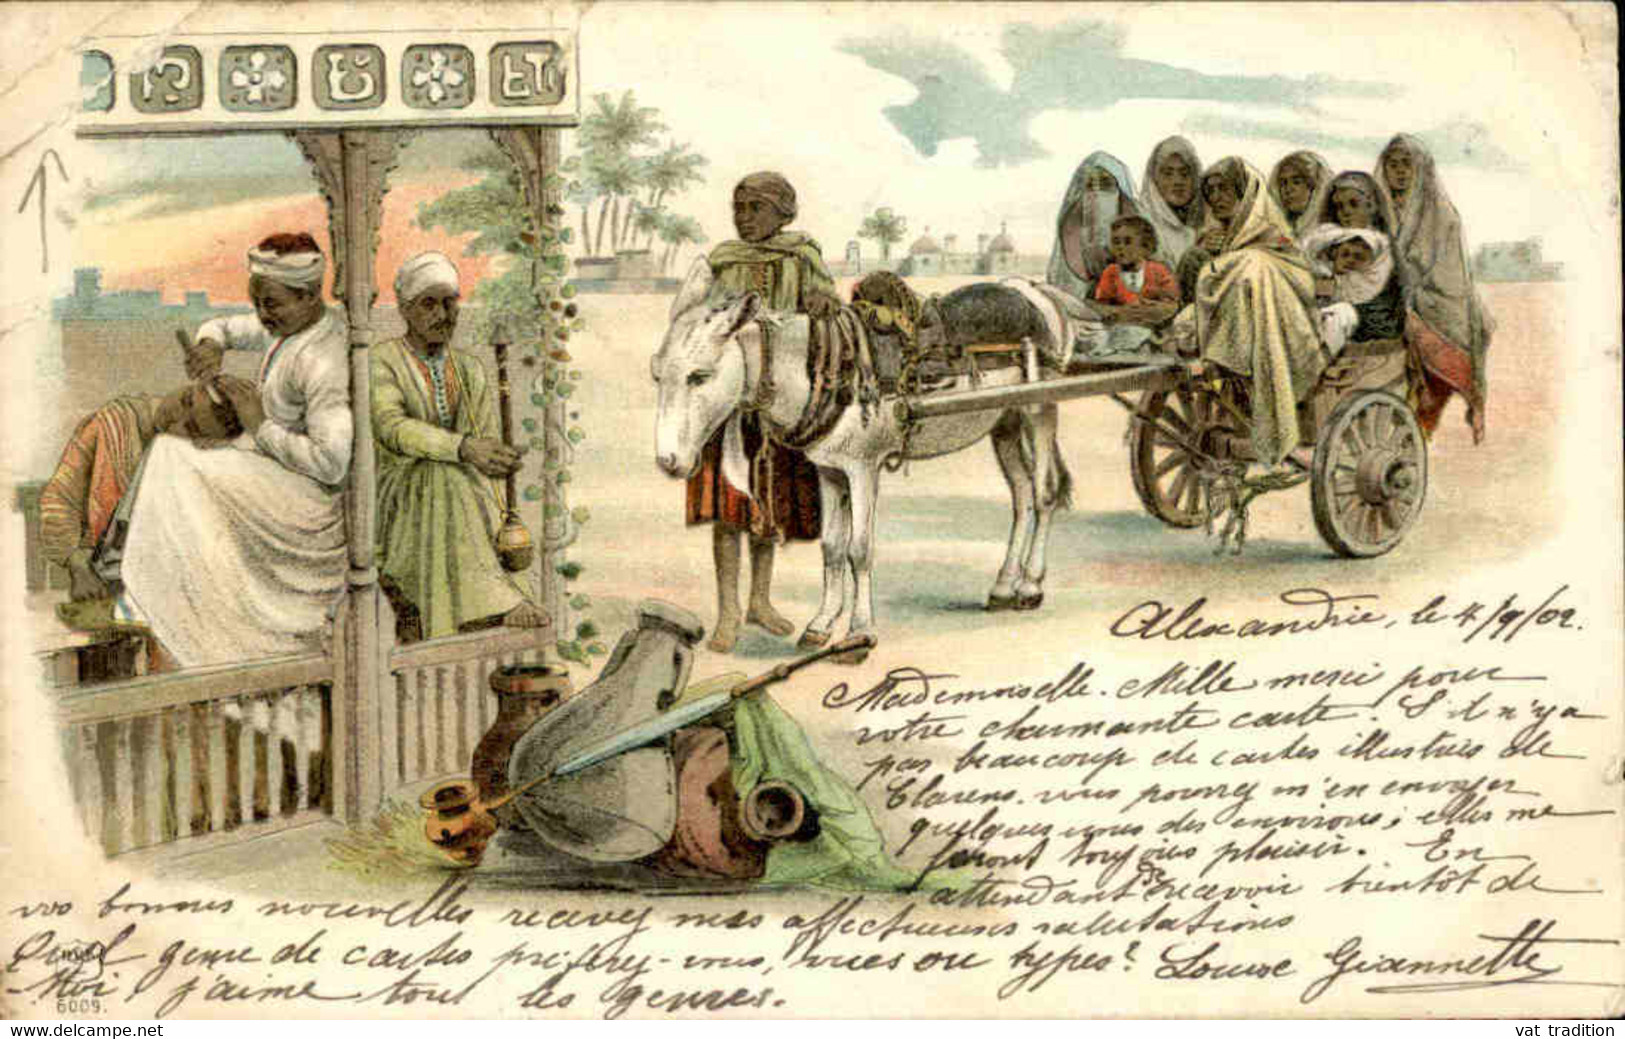 Alexandrie, le 4/9/02.
Mademoiselle. Mille merci pour
votre charmante carte. S'il n'y a
pas beaucoup de cartes illustrées de
Clarens. vous pourrez m'en envoyer
quelques unes des environs; elles me
feront toujours plaisir. En
attendant de recevoir bientôt de
vos bonnes nouvelles recevez mes affectueuses salutations
Quel genre de cartes préférez-vous, vues ou types? Louise Giannette
Moi, j'aime tous les genres.
6009.
vat tradition